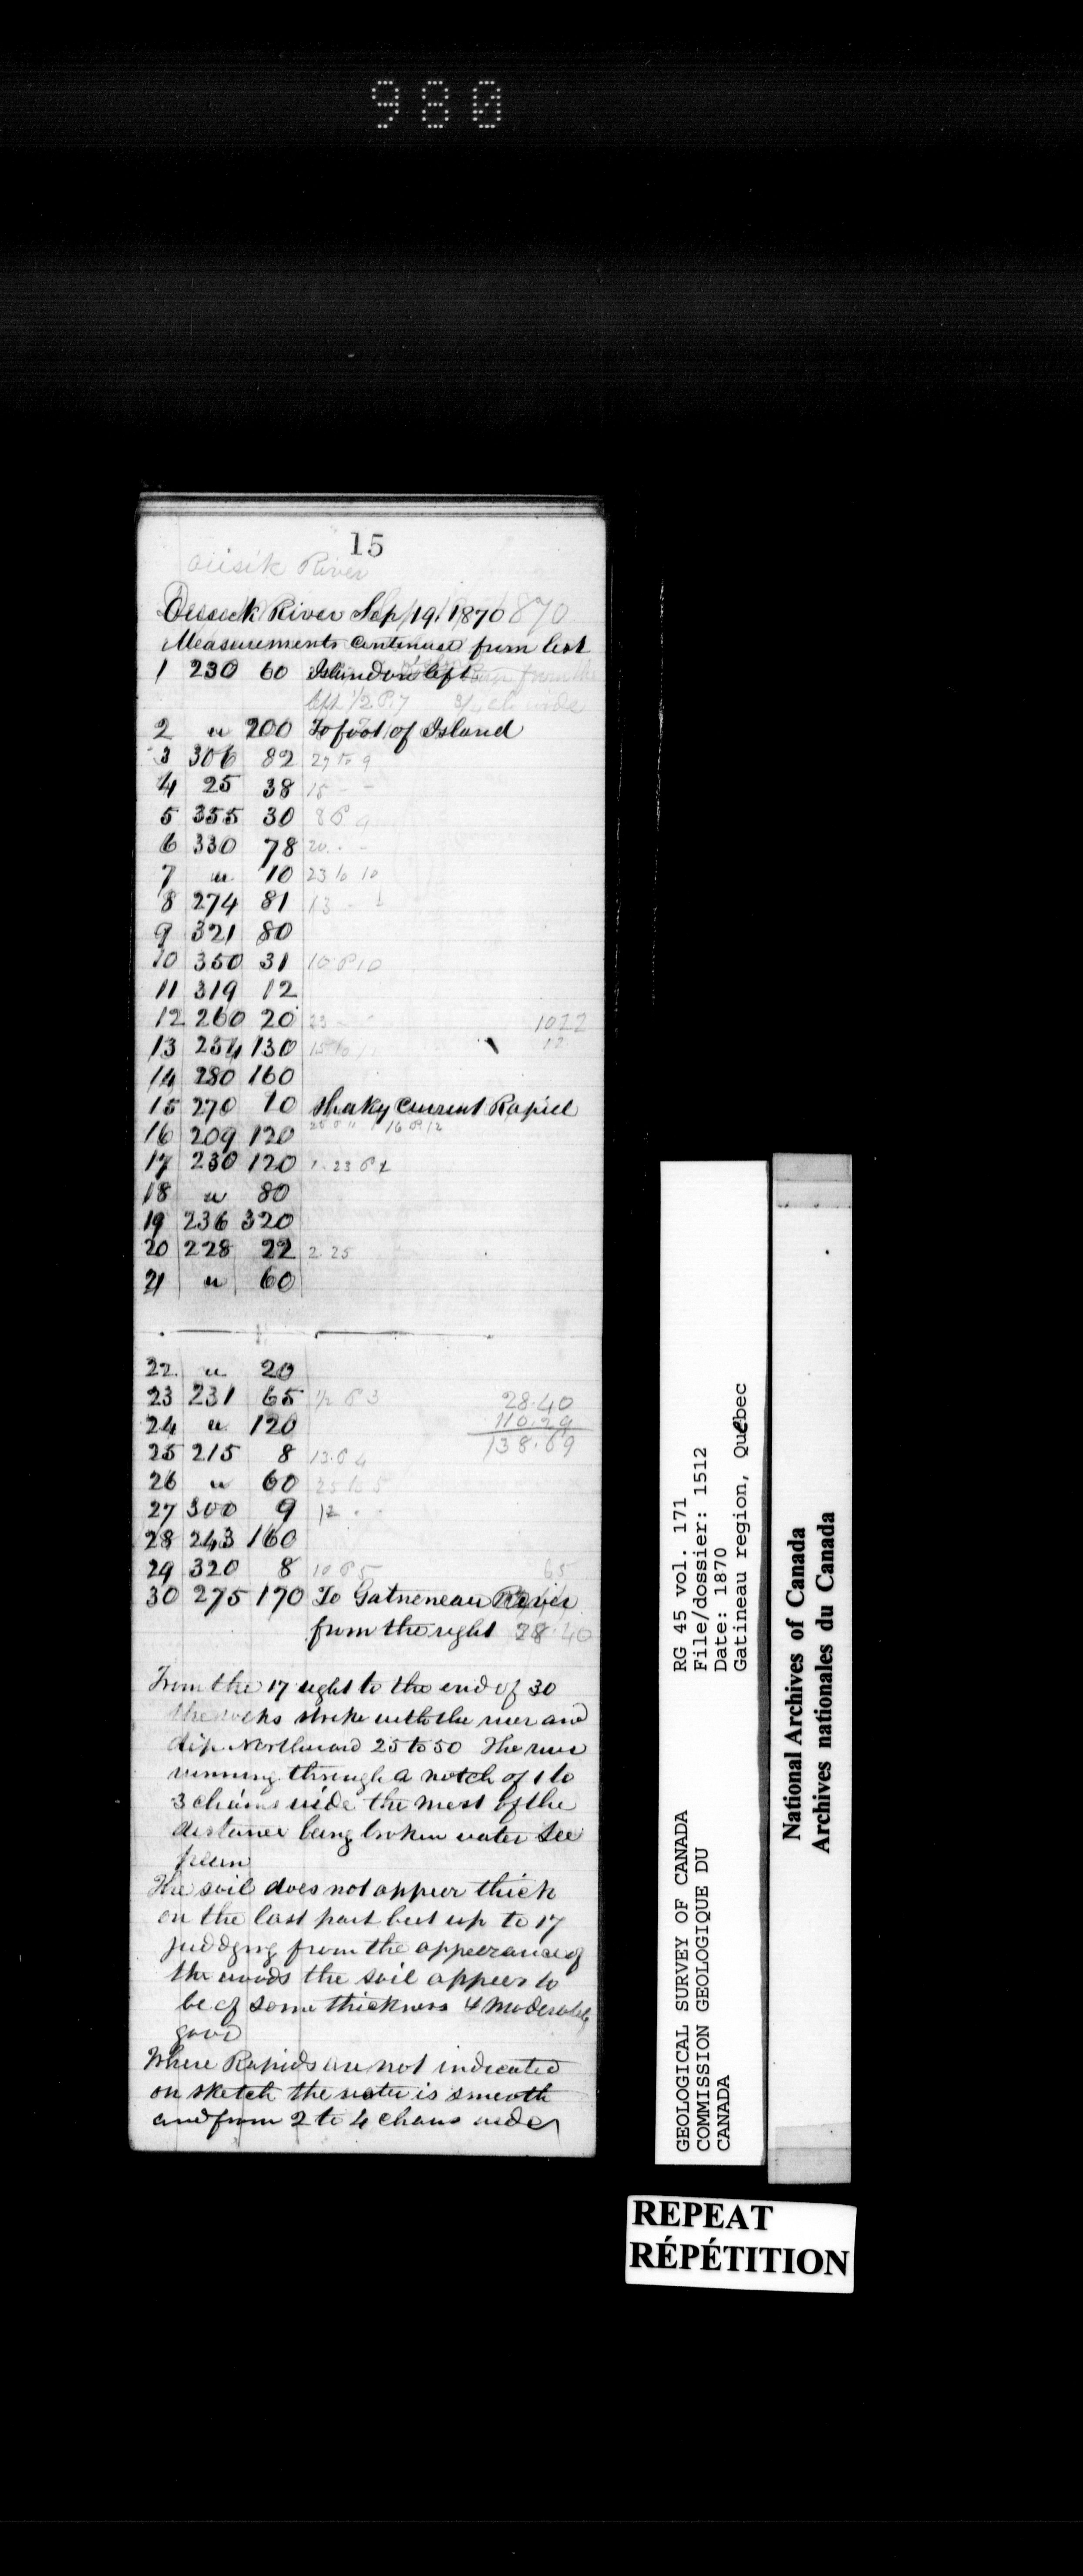 980
15
River
River Sep 19. 1870
Measurements continued from last
1 230 60 Island on left
2 " 200 To foot of Island
3 306 82 27 to 9
4 25 38 15 - -
5 355 30
6 330 78 20 - -
7 " 10 23 to 10
8 274 81 13 -
9 321 80
10 350 31
11 319 12
12 260 20 23 - 1022
13 254 130 12
14 280 160
15 270 10 Shaky Current Rapid
16 209 120
17 230 120
18 " 80
19 236 320
20 228 22 2.25
21 " 60
22 " 20
23 231 65 28.40
24 " 120 110.29
25 215 8 138.69
26 " 60 25 to 5
27 300 9 12 -
28 243 160
29 320 8 65
30 275 170 To Gatneneau River
from the right 28.40
From the 17 sight to the end of 30
the rocks strike with the river and
dip Northward 25 to 50 The river
running through a notch of 1 to
3 chains wide the most of the
distance being broken water See
The soil does not appear thick
on the last part but up to 17
judging from the appearance of
the woods the soil appears to
be of some thickness & moderately
good
Where Rapids are not indicated
on sketch the water is smooth
and from 2 to 4 chains wide
GEOLOGICAL SURVEY OF CANADA
COMMISSION GEOLOGIQUE DU
CANADA
RG 45 vol. 171
File/dossier: 1512
Date: 1870
Gatineau region, Québec
National Archives of Canada
Archives nationales du Canada
REPEAT
RÉPÉTITION